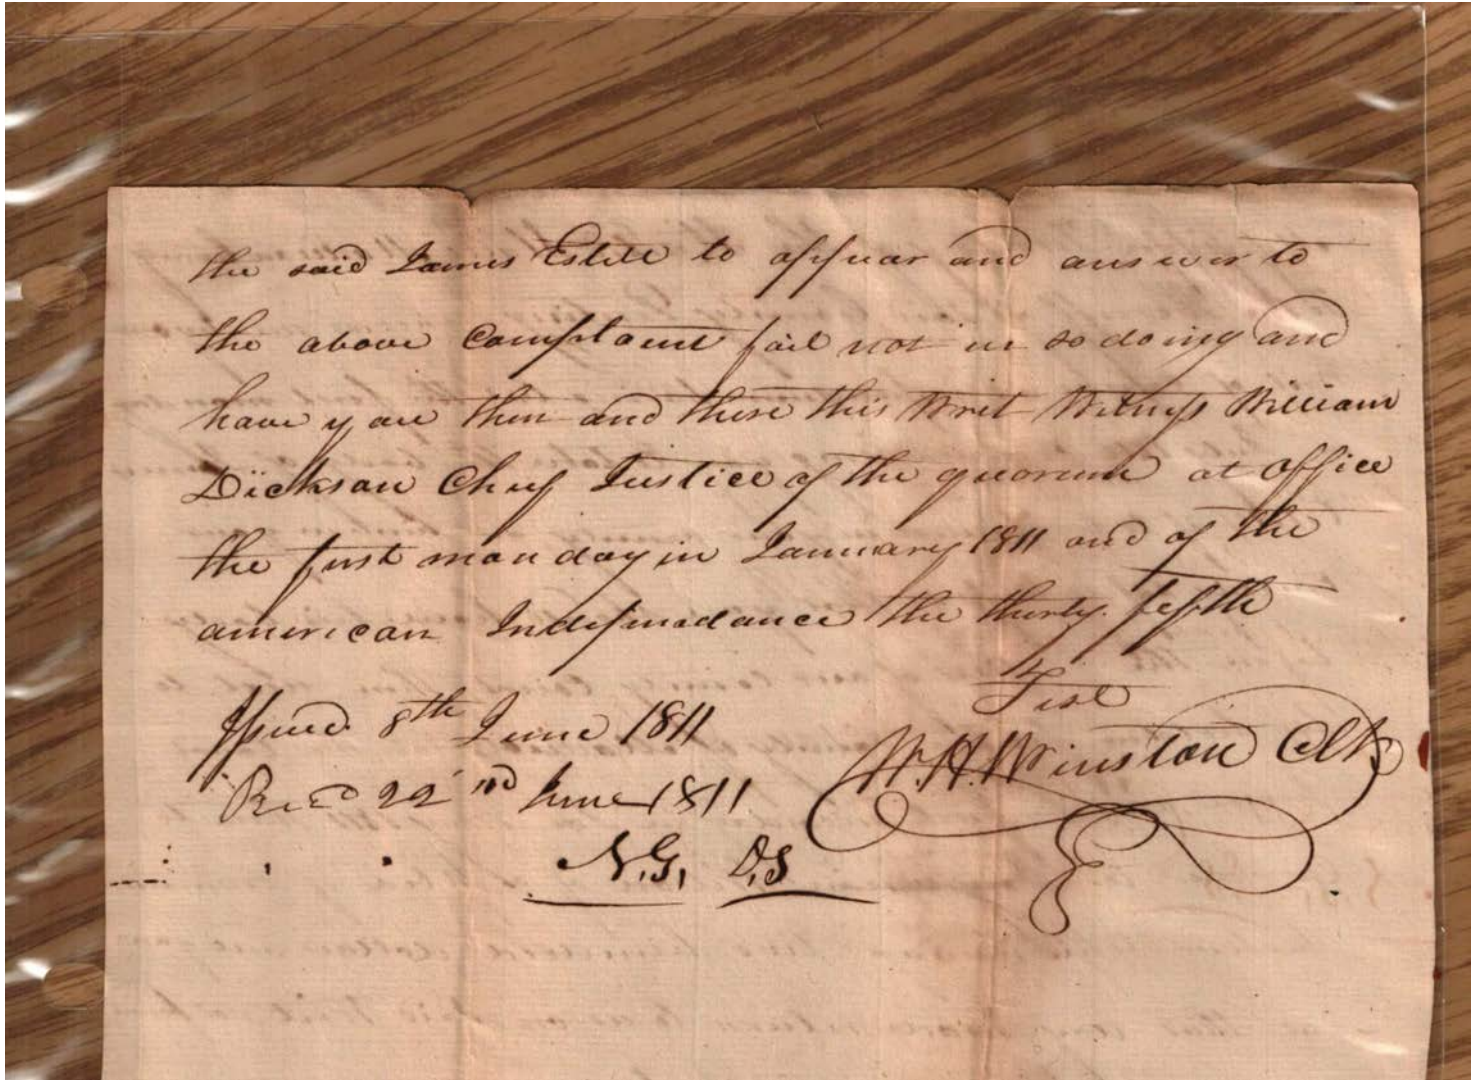 the said James Estill to appear and answer to
the above Complaint fail not in so doing and
have you then and there this Writ Witness William
Dickson Chief Justice of the quorum at office
the first monday in January 1811 and of the
american Independance the thirty fifth
Test
Issued 8th June 1811
W. H. Winston Clk
Recd 22nd June 1811
N.G. D.S